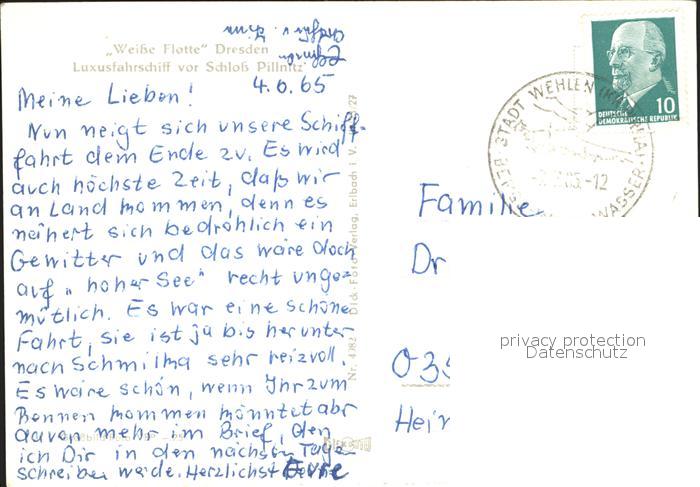 „Weiße Flotte" Dresden
Luxusfahrschiff vor Schloß Pillnitz
4.6.65
Meine Lieben!
Nun neigt sich unsere Schiff-
fahrt dem Ende zu. Es wird
auch höchste Zeit, daß wir
an Land kommen, denn es
nähert sich bedrohlich ein
Gewitter und das wäre doch
auf „hoher See" recht unge-
mütlich. Es war eine schöne
Fahrt, sie ist ja bis herunter
nach Schmilka sehr reizvoll.
Es wäre schön, wenn Ihr zum
kommen könntet
davon mehr im Brief, den
ich Dir in den nächsten Tage
schreiben werde. Herzlichst
Dick-Foto-Verlag, Erlbach i. V.
STADT WEHLEN
10
DEUTSCHE
DEMOKRATISCHE REPUBLIK
Familie
Dr
035
Hein
privacy protection
Datenschutz